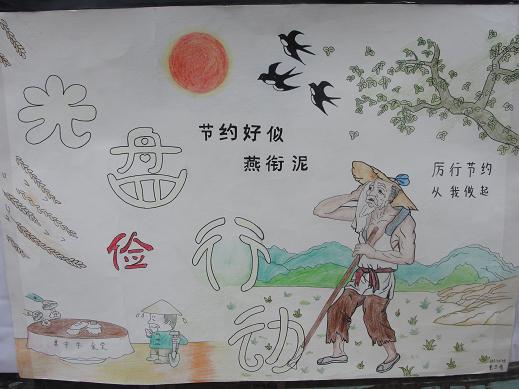 光盘行动
节约好似
燕衔泥
俭
厉行节约
从我做起